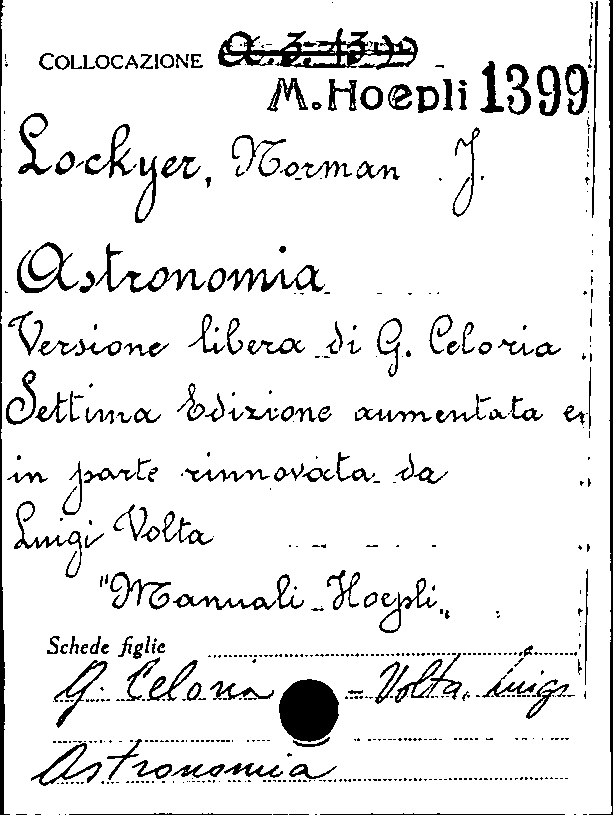 COLLOCAZIONE A. 3. 1399
M. Hoepli 1399
Lockyer, Norman J.
Astronomia
Versione libera di G. Celoria
Settima Edizione aumentata e
in parte rinnovata da
Luigi Volta
"Manuali Hoepli"
Schede figlie
G. Celoria - Volta, Luigi
Astronomia